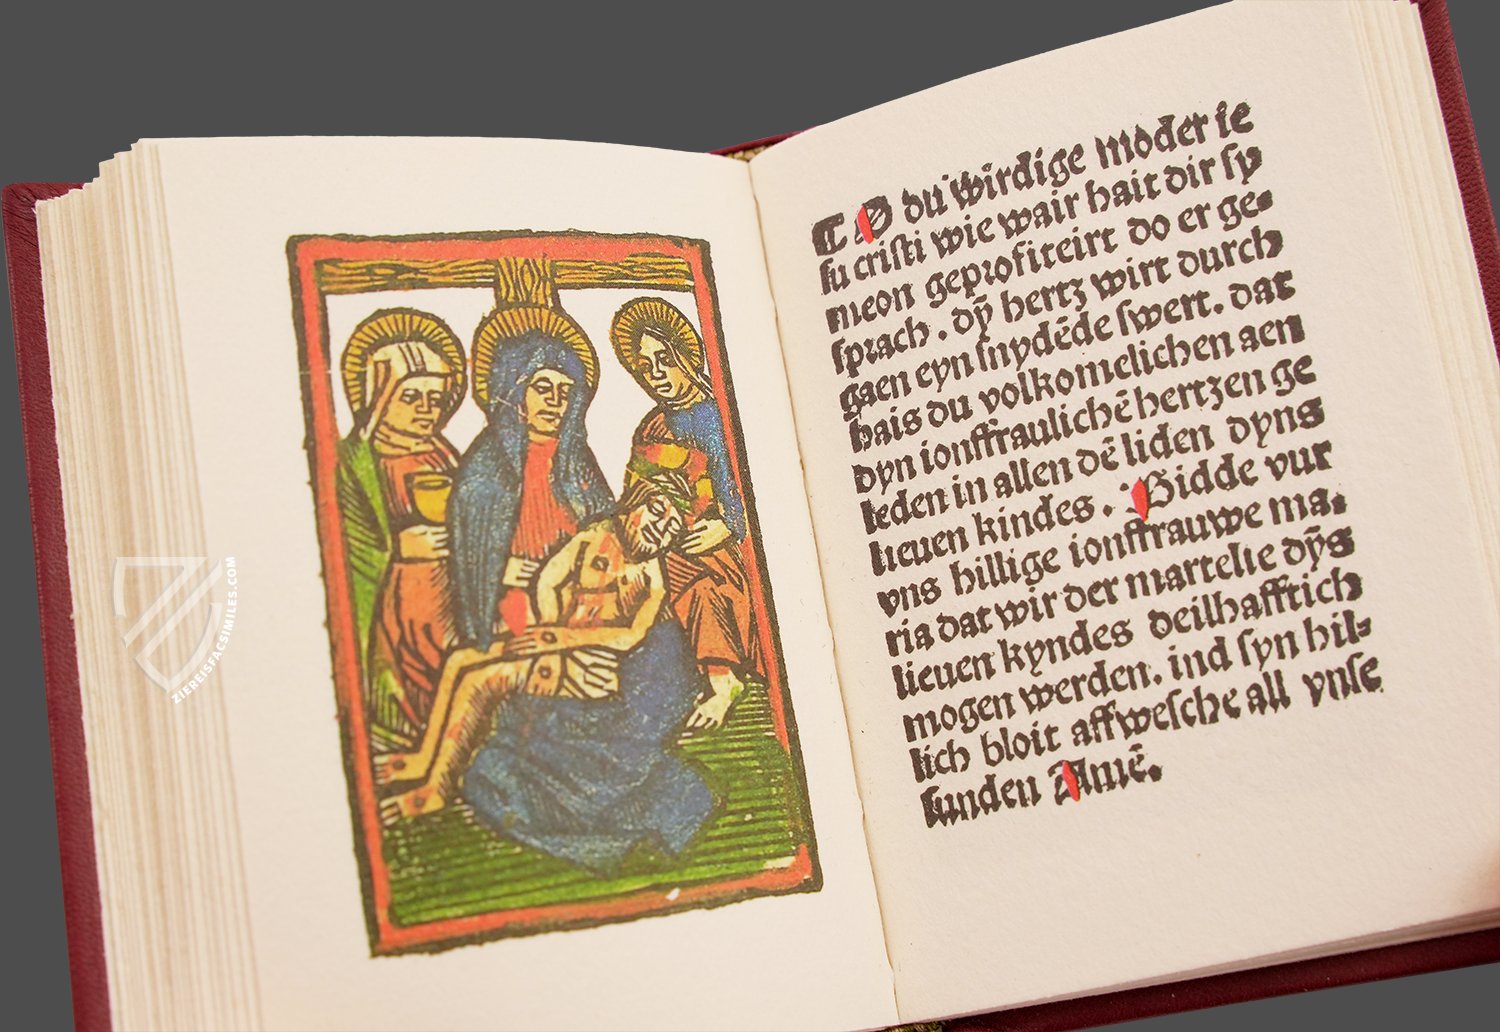 ¶ O du wirdige moder ie
su cristi wie wair hait dir sy
meon geprofiteirt do er ge-
sprach. dÿ hertz wirt durch
gaen eyn snydēde swert. dat
hais du volkomelichen aen
dyn ionffraulichē hertzen ge
leden in allen dē liden dyns
lieuen kindes. Bidde vur
vns hillige ionffrauwe ma-
ria dat wir der martelie dÿs
lieuen kyndes deilhafftich
mogen werden. ind syn hil-
lich bloit affwesche all vnse
sunden Amē.
ZIEREISFACSIMILES.COM